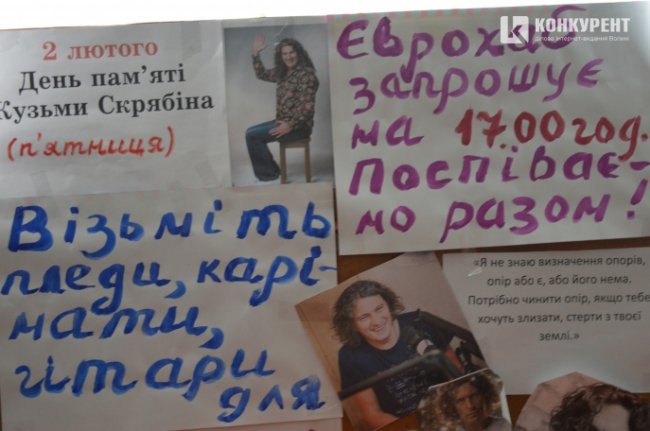 2 лютого
День пам'яті
Кузьми Скрябіна
(п'ятниця)
КОНКУРЕНТ
ділове інтернет-видання Волині
Єврохаб
запрошує
на 17.00 год.
Поспіває-
мо разом!
Візьміть
пледи, карі-
мати,
гітари
для
«Я не знаю визначення опорів,
опір або є, або його нема.
Потрібно чинити опір, якщо тебе
хочуть злизати, стерти з твоєї
землі.»